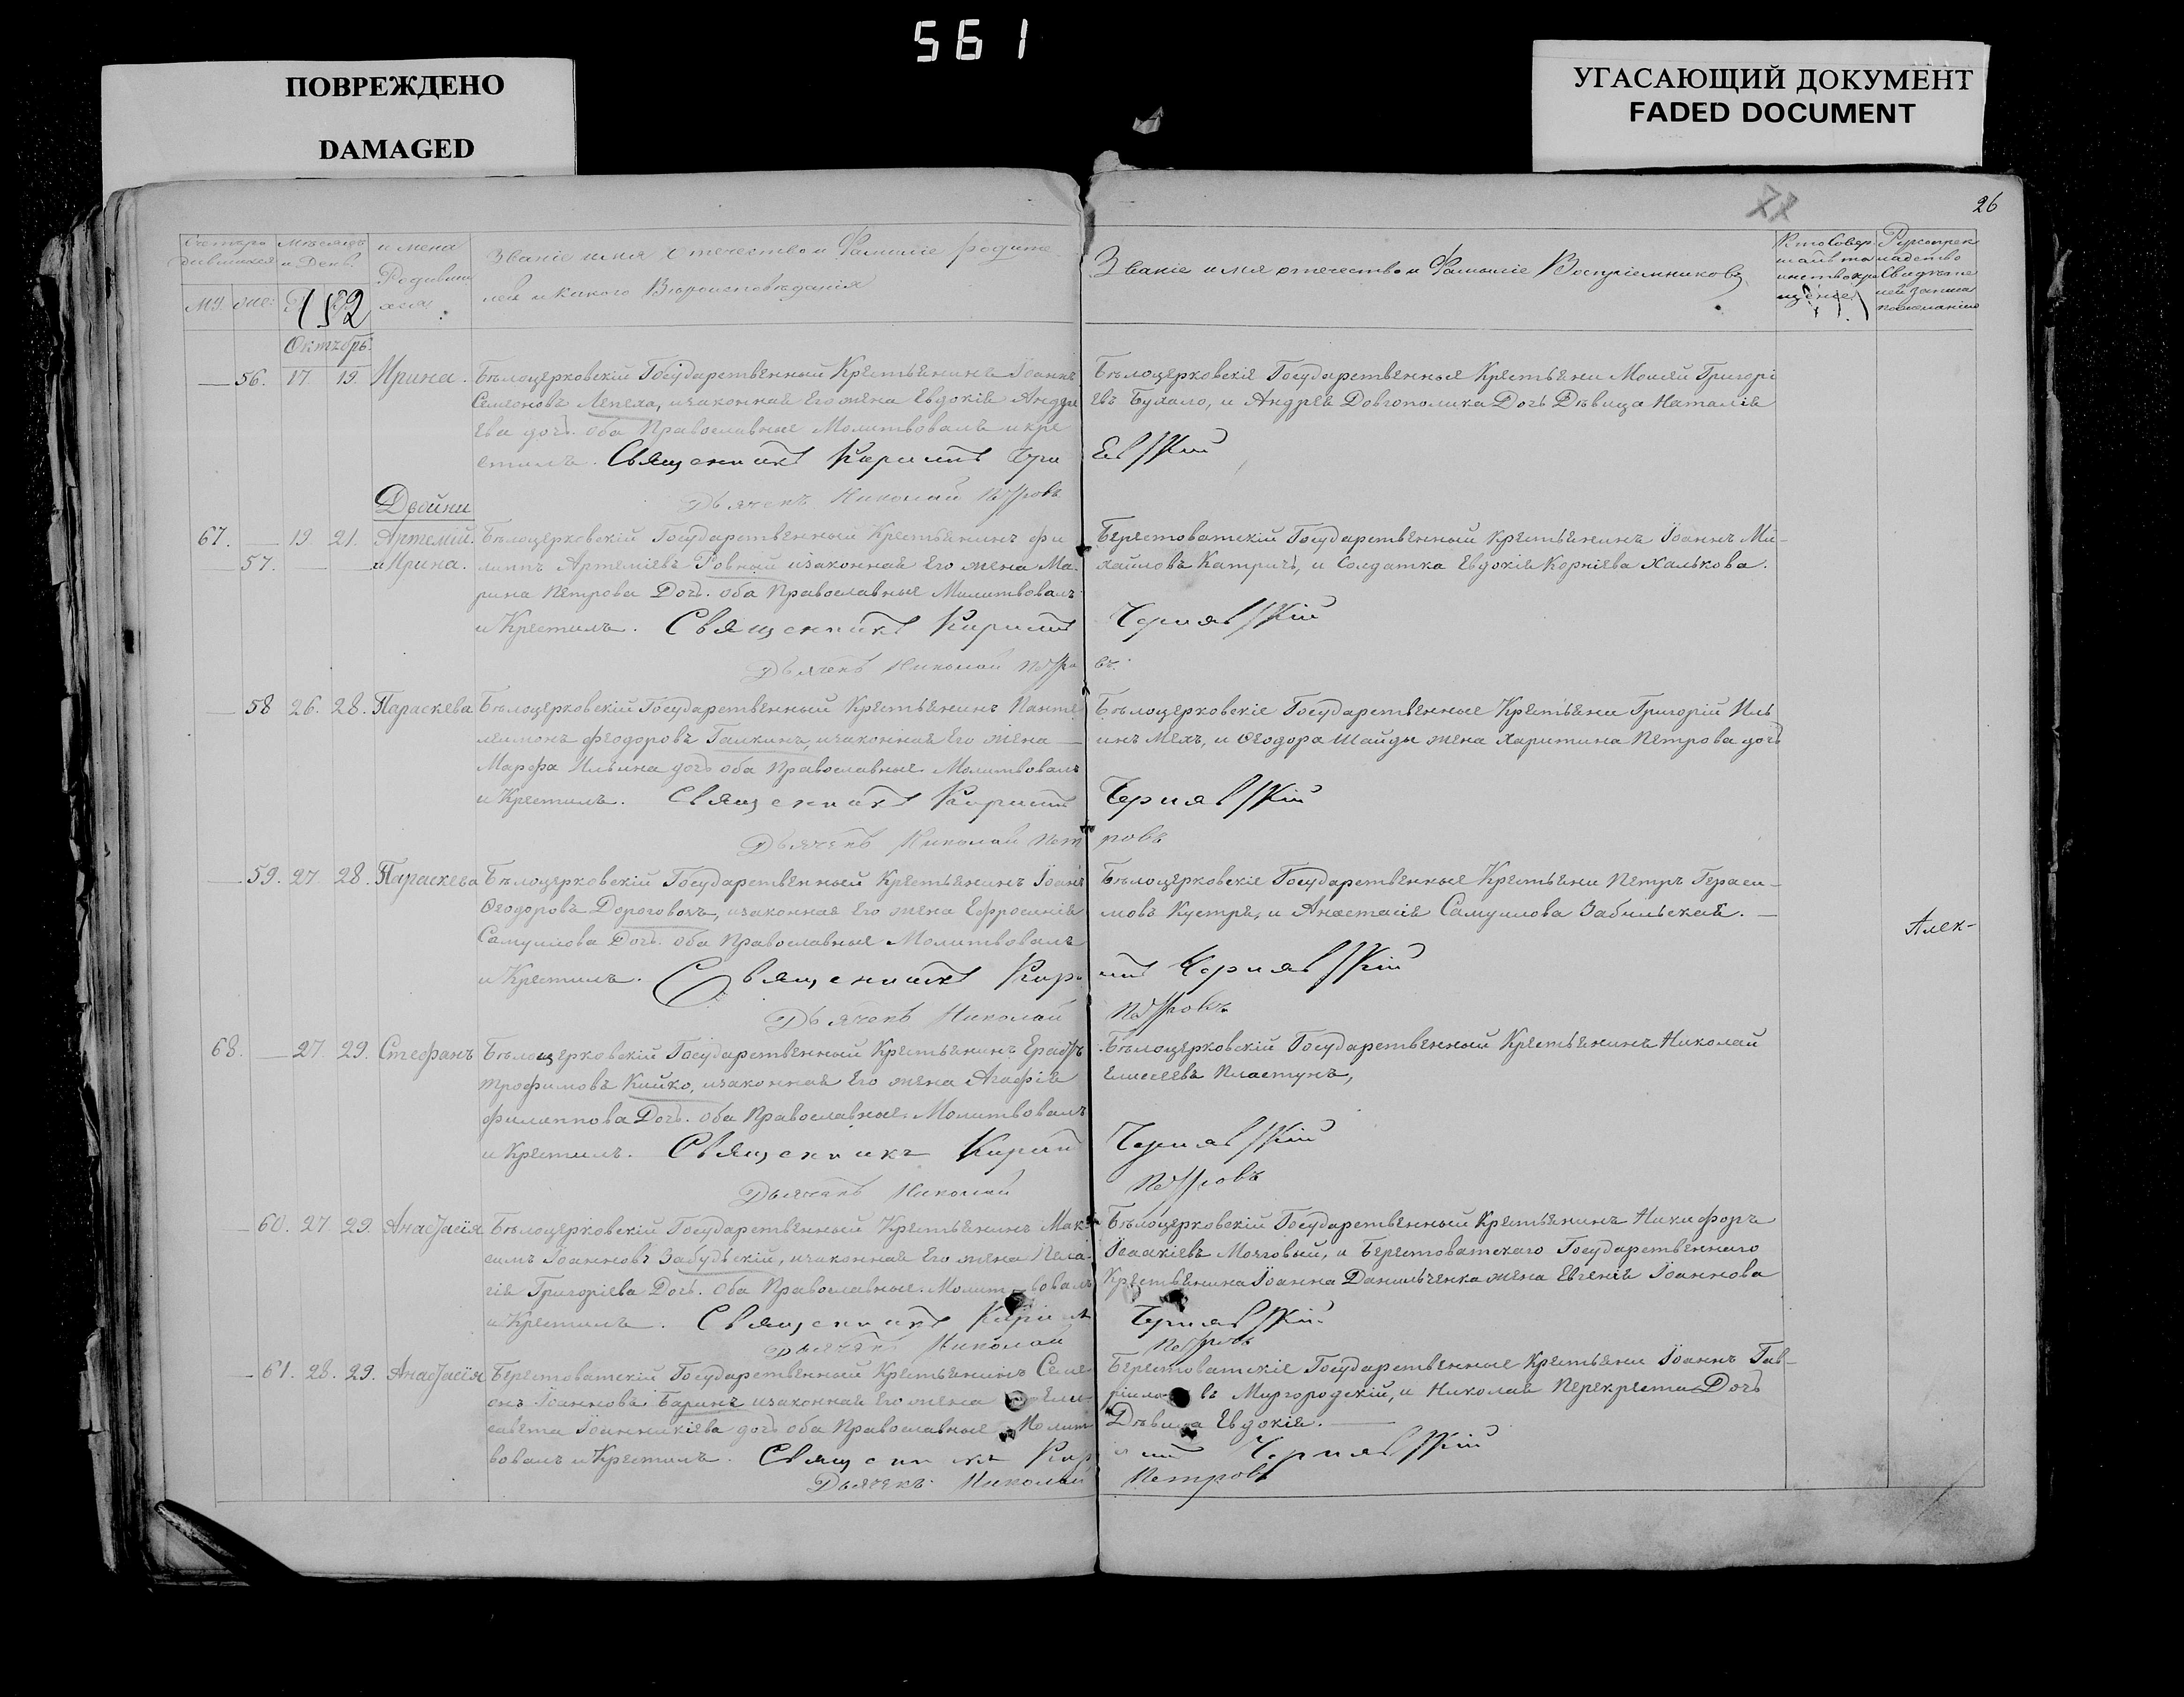 561
ПОВРЕЖДЕНО
DAMAGED
УГАСАЮЩИЙ ДОКУМЕНТ
FADED DOCUMENT
26
Мѣсяцъ и День.
имена Родивши хся
Званіе имя отечество и Фамиліе родите
лей и какого Вѣроисповѣданія
Званіе имя отечество и Фамиліе Воспріемниковъ
Октябрь.
56. 17. 19. Ирина. Бѣлоцерковскій Государственный Крестьянинъ Іоаннъ
Семеоновъ Лепеха, изаконная Его жена Евдокія Андре
Ева дочь. оба Православные Молитвовалъ и кре
стилъ. Священникъ Кирилъ Чрн
Дьячекъ Николай Петровъ
Бѣлоцерковскіе Государственные Крестьяни Моисей Григорі
евъ Бухало, и Андрея Довгополика Дочь Дѣвица Наталія
Евскій
Двойни
67. 19 21. Артемій. Бѣлоцерковскій Государственный Крестьянинъ фи
57. и Ирина. липпъ Артеміевъ Ровный изаконная Его жена Ма-
рина Петрова Дочь. оба Православные Молитвовалъ
и Крестилъ. Священникъ Кирилъ
Дьячекъ Николай Петро
Берестоватскій Государственный Крестьянинъ Іоаннъ Ми-
хайловъ Катричъ, и Солдатка Евдокія Корніева Халькова.
Чернявскій
въ.
58 26. 28. Параскева Бѣлоцерковскій Государственный Крестьянинъ Панте
леимонъ Феодоровъ Галкинъ, изаконная Его жена
Марфа Ильина дочь оба Православные Молитвовалъ
и Крестилъ. Священникъ Кирилъ
Дьячекъ Николай Пет
Бѣлоцерковскіе Государственные Крестьяни Григорій Иль
инъ Мехъ, и Ѳеодора Шайды жена Харитина Петрова дочь
Чернявскій
ровъ
59. 27. 28. Параскева Бѣлоцерковскій Государственный Крестьянинъ Іоанъ
Ѳеодоровъ Дороговозъ, изаконная Его жена Ефросинія
Самуилова Дочь. оба Православные Молитвовалъ
и Крестилъ. Священникъ Кири
Дьячекъ Николай
Бѣлоцерковскіе Государственные Крестьяни Петръ Гераси-
мовъ Кустря, и Анастасія Самуилова Забильская.
лъ Чернявскій
Петровъ
Алек-
68. 27. 29. Стефанъ Бѣлоцерковскій Государственный Крестьянинъ Ерастъ
Трофимовъ Кийко, изаконная Его жена Агафія
Филиппова Дочь. оба Православные Молитвовалъ
и Крестилъ. Священникъ Кирил
Дьячекъ Николай
Бѣлоцерковскій Государственный Крестьянинъ Николай
Елисеевъ Пластунъ,
Чернявскій
Петровъ
60. 27 29. Анастасія Бѣлоцерковскій Государственный Крестьянинъ Мак-
симъ Іоанновъ Забудьскій, изаконная Его жена Пела-
гія Григоріева Дочь. Оба Православные. Молитвовалъ
и Крестилъ. Священникъ Кирил
Дьячекъ Николай
Бѣлоцерковскій Государственный Крестьянинъ Никифоръ
Исаакіевъ Мозговый, и Берестоватскаго Государственнаго
Крестьянина Іоанна Данильченка жена Евгенія Іоаннова
Чернявскій.
Петровъ
61. 28. 29. Анастасія Берестоватскій Государственный Крестьянинъ Семе
онъ Іоанновъ Баринъ изаконная Его жена Ели-
савета Іоанникіева дочь оба Православные Молит
вовалъ и Крестилъ. Священникъ Кир
Дьячекъ. Николай
Берестоватскіе Государственные Крестьяни Іоаннъ Гав-
рііловъ Миргородскій, и Николая Перекреста Дочь
Дѣвица Евдокія.
илъ Чернявскій
Петровъ